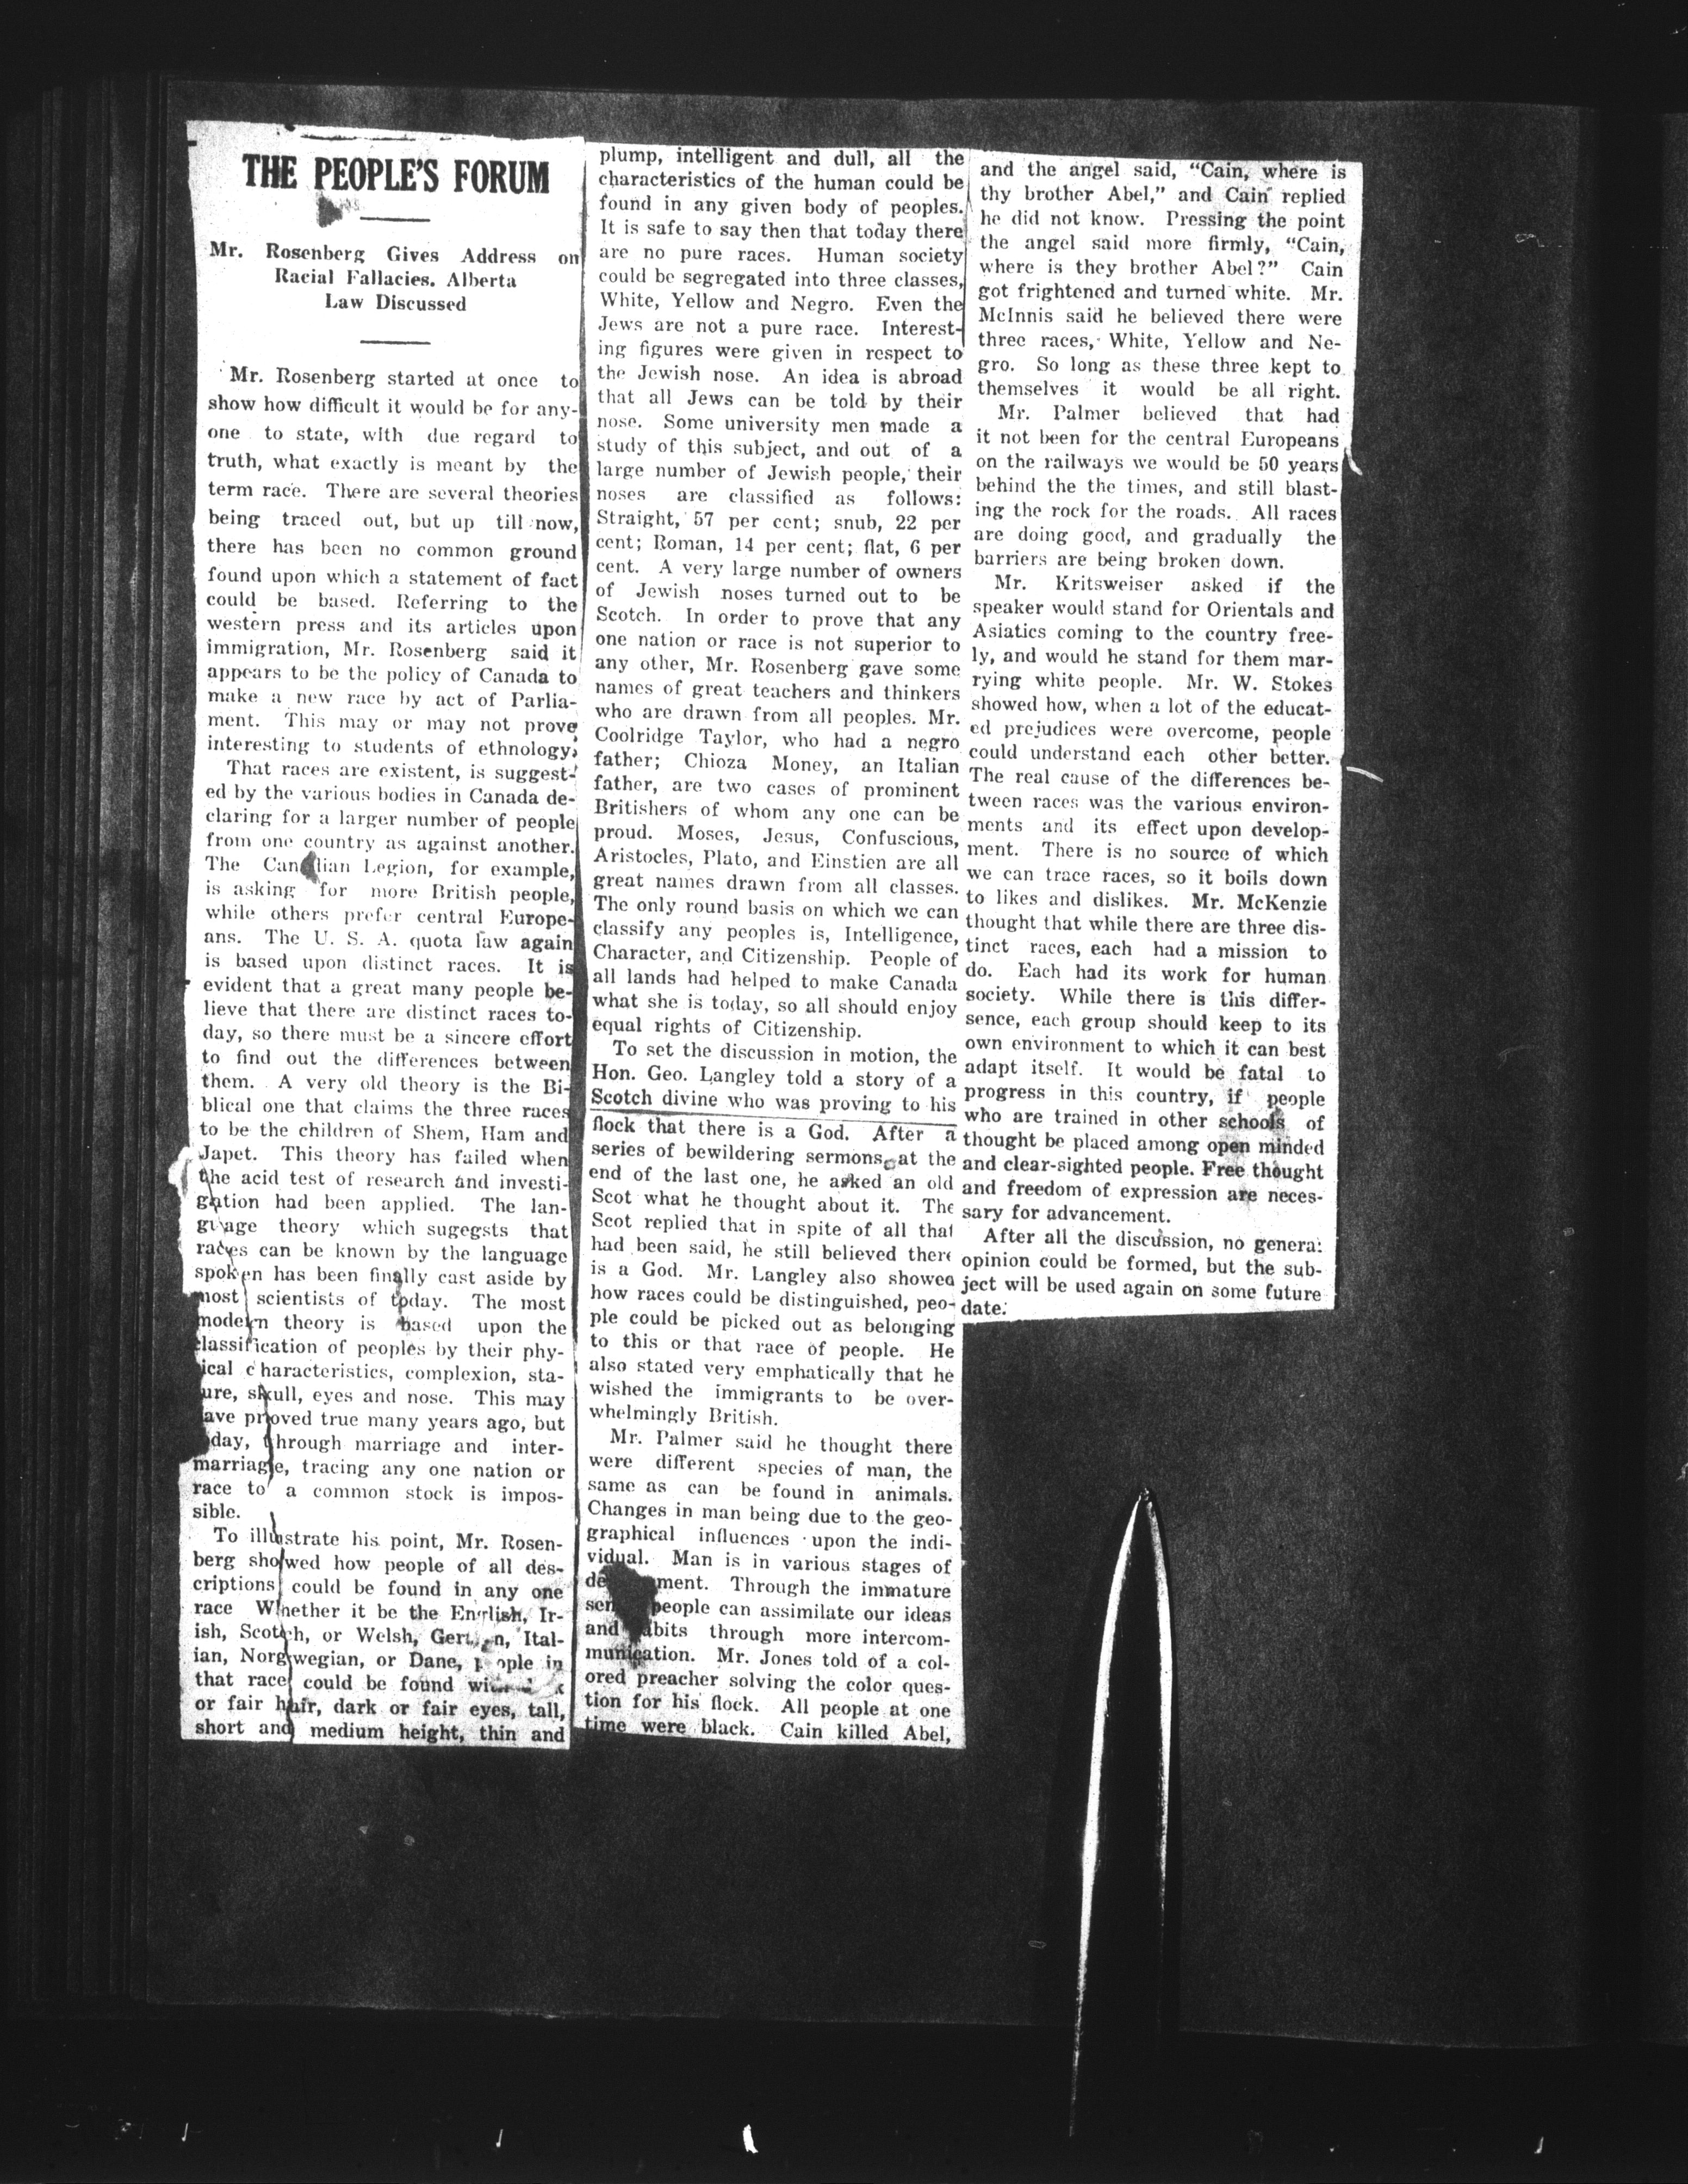 THE PEOPLE'S FORUM
Mr. Rosenberg Gives Address on
Racial Fallacies. Alberta
Law Discussed
Mr. Rosenberg started at once to
show how difficult it would be for any-
one to state, with due regard to
truth, what exactly is meant by the
term race. There are several theories
being traced out, but up till now,
there has been no common ground
found upon which a statement of fact
could be based. Referring to the
western press and its articles upon
immigration, Mr. Rosenberg said it
appears to be the policy of Canada to
make a new race by act of Parlia-
ment. This may or may not prove
interesting to students of ethnology.
That races are existent, is suggest-
ed by the various bodies in Canada de-
claring for a larger number of people
from one country as against another.
The Canadian Legion, for example,
is asking for more British people,
while others prefer central Europe-
ans. The U. S. A. quota law again
is based upon distinct races. It is
evident that a great many people be-
lieve that there are distinct races to-
day, so there must be a sincere effort
to find out the differences between
them. A very old theory is the Bi-
blical one that claims the three races
to be the children of Shem, Ham and
Japet. This theory has failed when
the acid test of research and investi-
gation had been applied. The lan-
guage theory which sugegsts that
races can be known by the language
spoken has been finally cast aside by
most scientists of today. The most
modern theory is based upon the
classification of peoples by their phy-
ical characteristics, complexion, sta-
ure, skull, eyes and nose. This may
ave proved true many years ago, but
day, through marriage and inter-
marriage, tracing any one nation or
race to a common stock is impos-
sible.
To illustrate his point, Mr. Rosen-
berg showed how people of all des-
criptions could be found in any one
race Whether it be the English, Ir-
ish, Scotch, or Welsh, German, Ital-
ian, Norgwegian, or Dane, people in
that race could be found
or fair hair, dark or fair eyes, tall,
short and medium height, thin and
plump, intelligent and dull, all the
characteristics of the human could be
found in any given body of peoples.
It is safe to say then that today there
are no pure races. Human society
could be segregated into three classes,
White, Yellow and Negro. Even the
Jews are not a pure race. Interest-
ing figures were given in respect to
the Jewish nose. An idea is abroad
that all Jews can be told by their
nose. Some university men made a
study of this subject, and out of a
large number of Jewish people, their
noses are classified as follows:
Straight, 57 per cent; snub, 22 per
cent; Roman, 14 per cent; flat, 6 per
cent. A very large number of owners
of Jewish noses turned out to be
Scotch. In order to prove that any
one nation or race is not superior to
any other, Mr. Rosenberg gave some
names of great teachers and thinkers
who are drawn from all peoples. Mr.
Coolridge Taylor, who had a negro
father; Chioza Money, an Italian
father, are two cases of prominent
Britishers of whom any one can be
proud. Moses, Jesus, Confuscious,
Aristocles, Plato, and Einstien are all
great names drawn from all classes.
The only round basis on which we can
classify any peoples is, Intelligence,
Character, and Citizenship. People of
all lands had helped to make Canada
what she is today, so all should enjoy
equal rights of Citizenship.
To set the discussion in motion, the
Hon. Geo. Langley told a story of a
Scotch divine who was proving to his
flock that there is a God. After a
series of bewildering sermons, at the
end of the last one, he asked an old
Scot what he thought about it. The
Scot replied that in spite of all that
had been said, he still believed there
is a God. Mr. Langley also showed
how races could be distinguished, peo-
ple could be picked out as belonging
to this or that race of people. He
also stated very emphatically that he
wished the immigrants to be over-
whelmingly British.
Mr. Palmer said he thought there
were different species of man, the
same as can be found in animals.
Changes in man being due to the geo-
graphical influences upon the indi-
vidual. Man is in various stages of
de ment. Through the immature
people can assimilate our ideas
and abits through more intercom-
munication. Mr. Jones told of a col-
ored preacher solving the color ques-
tion for his flock. All people at one
time were black. Cain killed Abel,
and the angel said, "Cain, where is
thy brother Abel," and Cain replied
he did not know. Pressing the point
the angel said more firmly, "Cain,
where is they brother Abel?" Cain
got frightened and turned white. Mr.
McInnis said he believed there were
three races, White, Yellow and Ne-
gro. So long as these three kept to
themselves it would be all right.
Mr. Palmer believed that had
it not been for the central Europeans
on the railways we would be 50 years
behind the the times, and still blast-
ing the rock for the roads. All races
are doing good, and gradually the
barriers are being broken down.
Mr. Kritsweiser asked if the
speaker would stand for Orientals and
Asiatics coming to the country free-
ly, and would he stand for them mar-
rying white people. Mr. W. Stokes
showed how, when a lot of the educat-
ed prejudices were overcome, people
could understand each other better.
The real cause of the differences be-
tween races was the various environ-
ments and its effect upon develop-
ment. There is no source of which
we can trace races, so it boils down
to likes and dislikes. Mr. McKenzie
thought that while there are three dis-
tinct races, each had a mission to
do. Each had its work for human
society. While there is this differ-
sence, each group should keep to its
own environment to which it can best
adapt itself. It would be fatal to
progress in this country, if people
who are trained in other schools of
thought be placed among open minded
and clear-sighted people. Free thought
and freedom of expression are neces-
sary for advancement.
After all the discussion, no general
opinion could be formed, but the sub-
ject will be used again on some future
date.